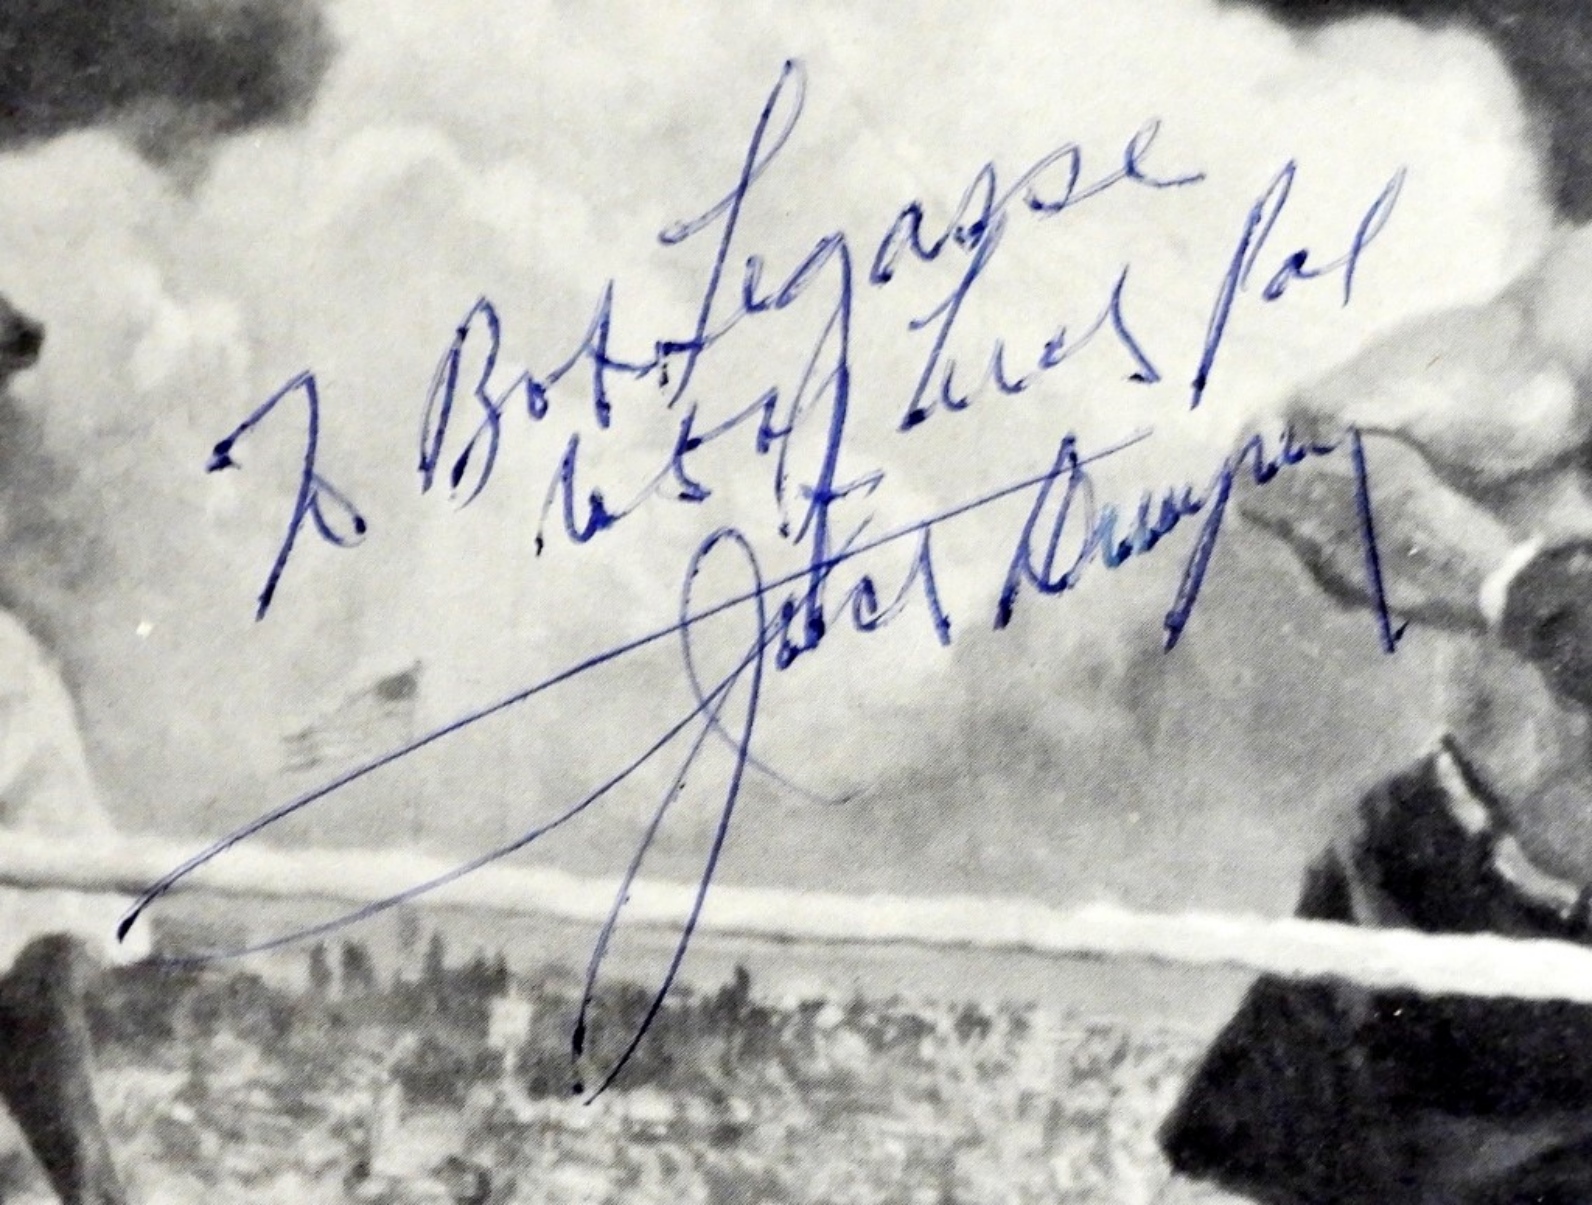 To Bob Legasse
lots of Luck Pal
Jack Dempsey